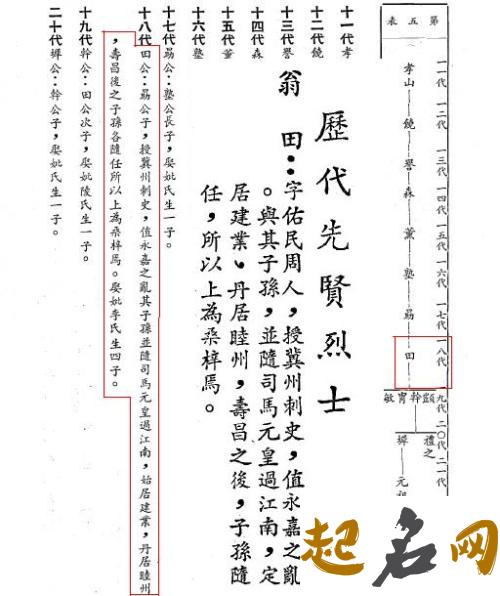 第五表
一一代 一二代 一三代 一四代 一五代 一六代 一七代 一八代 一九代 二〇代 二一代
孝山 饒 譽 森 董 塾 昜 田
幹 敏
禮之
墀 元
歷代先賢烈士
翁田：字佑民周人，授冀州刺史，值永嘉之亂
。與其子孫，並隨司馬元皇過江南，定
居建業、丹居睦州，壽昌之後，子孫隨
任，所以上為桑梓焉。
十一代孝
十二代饒
十三代譽
十四代森
十五代董
十六代塾
十七代昜公：塾公長子，娶妣氏生一子。
十八代田公：昜公子，授冀州刺史，值永嘉之亂其子孫並隨司馬元皇過江南，始居建業，丹居睦州
，壽昌後之子孫各隨任所以上為桑梓焉。娶妣李氏生四子。
十九代幹公：田公次子，娶妣陵氏生一子。
二十代墀公：幹公子，娶妣氏生一子。
起名网